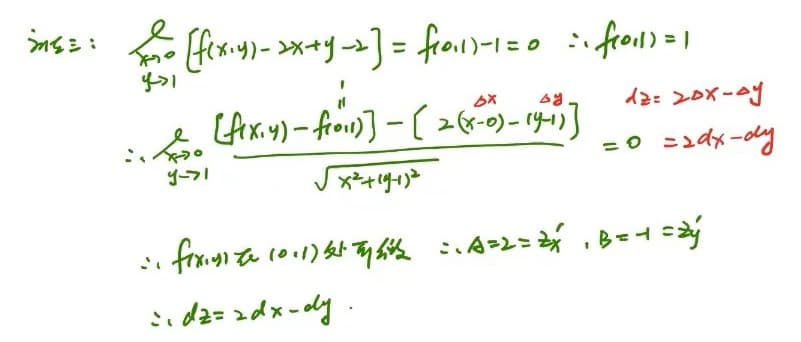 法三: lim x→0 y→1 [f(x,y)-2x+y-2] = f(0,1)-1=0 ∴ f(0,1)=1
∴ lim x→0 y→1 [f(x,y)-f(0,1)]-[2(x-0)-(y-1)] / √x²+(y-1)² = 0
1 =
Δx Δy
dz=2Δx-Δy
=2dx-dy
∴ f(x,y)在(0,1)处可微 ∴ A=2=z'x , B=-1=z'y
∴ dz=2dx-dy.